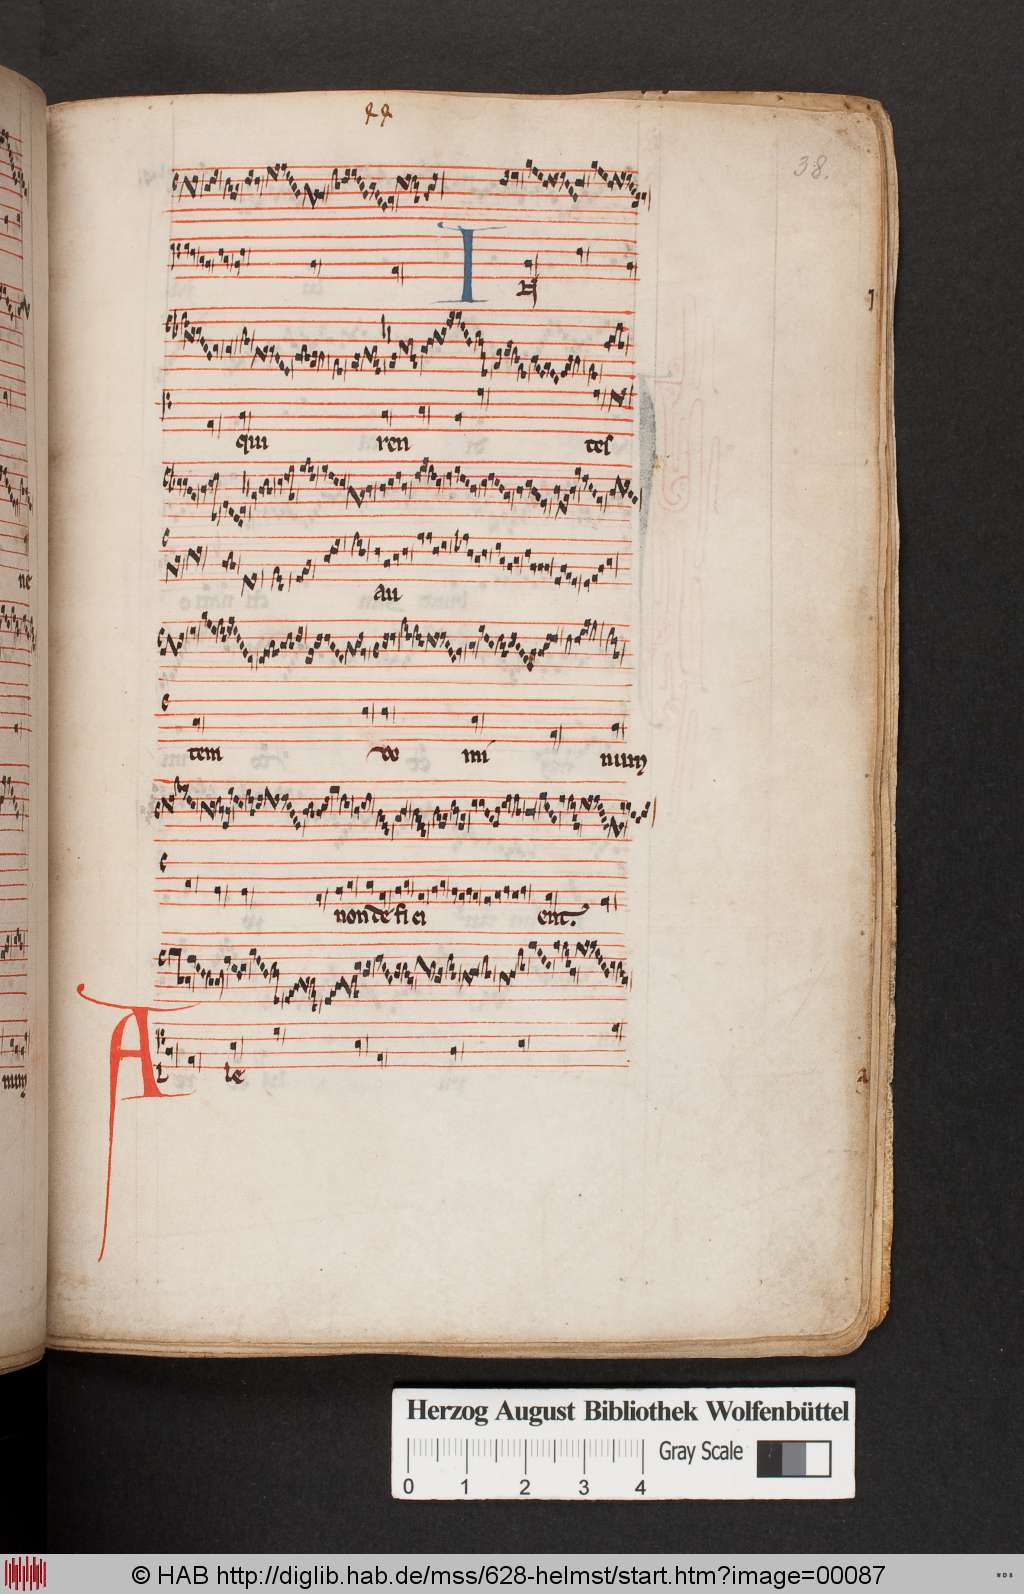 38.
I N
qui ren tes
ne
au
tem do mi num
non de fi ci ent.
A l le
num
Herzog August Bibliothek Wolfenbüttel
Gray Scale
0 1 2 3 4
© HAB http://diglib.hab.de/mss/628-helmst/start.htm?image=00087